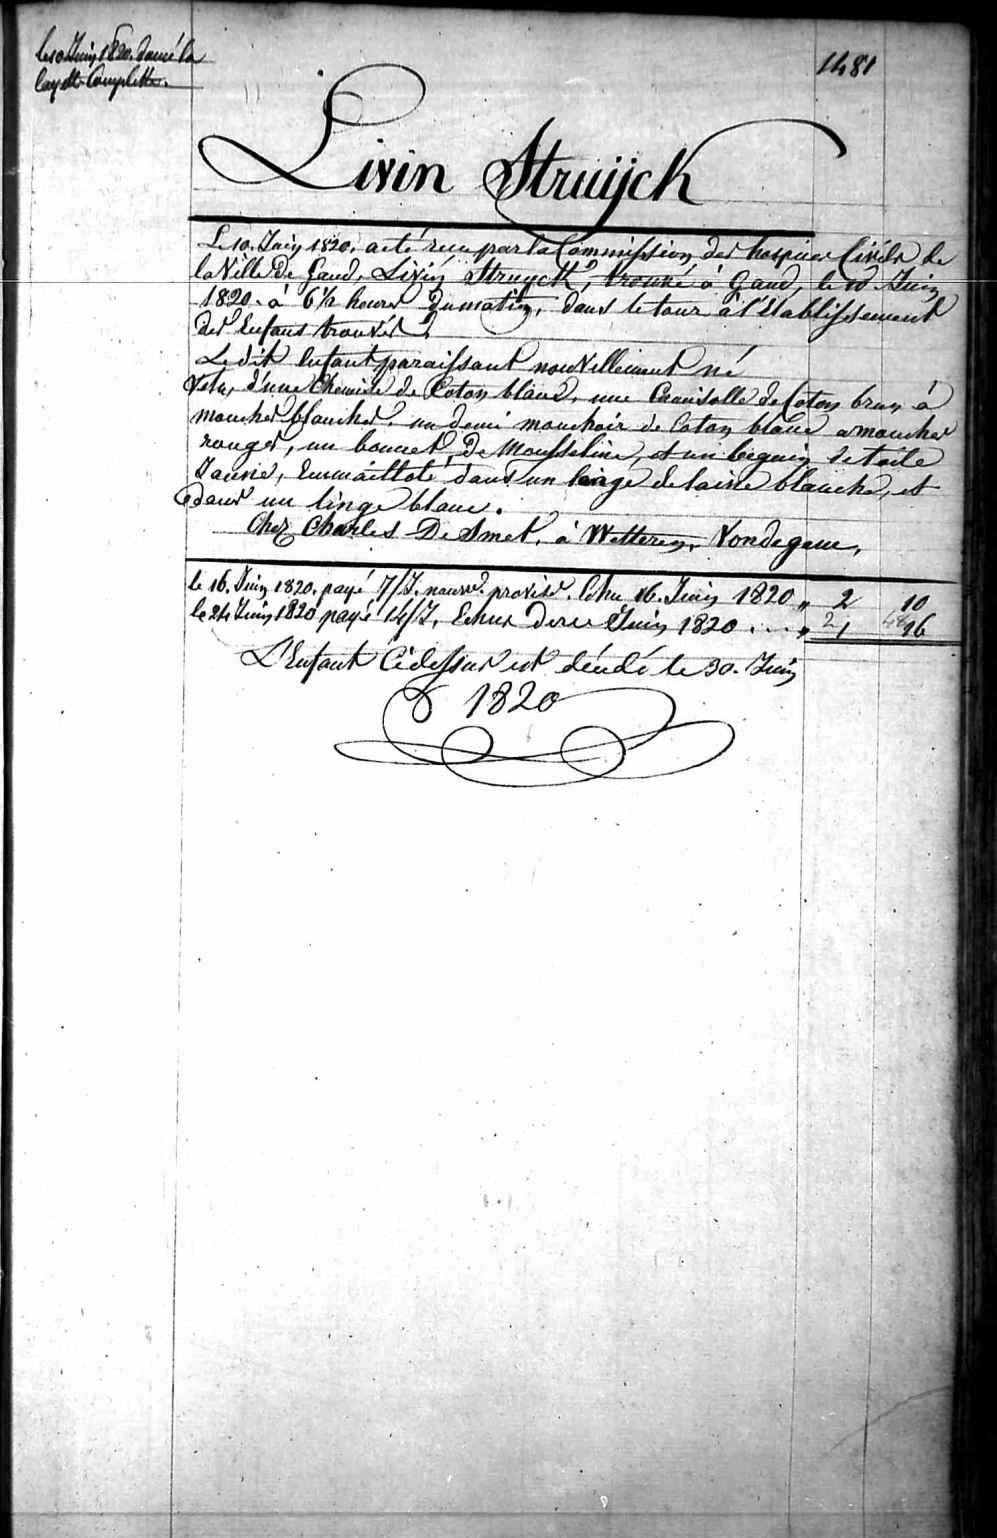 le 10 Juin 1820. donné la
layette Complette.
1481
Livin Struijck
Le 10. Juin 1820. a eté reçu par la Commission des hospices Civils de
la Ville de Gand, Livin Struyck, trouvé à Gand, le 10 Juin
1820. à 6 1/2 heures du matin, dans le tour à l'Etablissement
des Enfans trouvés.
Le dit Enfant paraissant nouvellement né
Vetu, d'une Chemise de Coton blanc, une Camisolle de Coton brun à
mouches blanches, un demi mouchoir de Coton blanc a mouches
rouges, un bonnet de Mousseline, et un beguin de toile
Jaune, Emmailloté dans un lange de laine blanche, et
dans un linge blanc.
Chez Charles De Smet, à Wetteren, Vondegem,
le 16. Juin 1820. payé 7/J. nourre. proviso. Echu 16. Juin 1820 „ 2 10
le 24 Juin 1820 payé 14/J, Echus Juin 1820 . . . „ 1 16
2 48
L'Enfant Cidessus est décédé le 30. Juin
1820